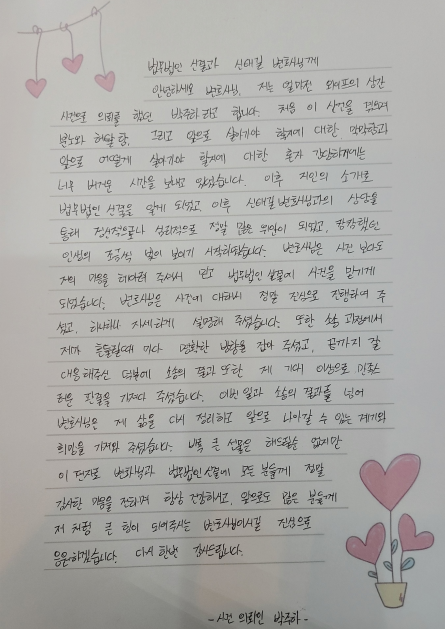 법무법인 선결과 신태길 변호사님께
안녕하세요 변호사님, 저는 얼마전 와이프의 상간
사건으로 의뢰를 했던 박주하 라고 합니다. 처음 이 사건을 겪으며
분노와 허탈함, 그리고 앞으로 살아가야 할지에 대한 막막함과
앞으로 어떻게 살아가야 할지에 대한 혼자 감당하기에는
너무 버거운 시간을 보내고 있었습니다. 이후 지인의 소개로
법무법인 선결을 알게 되었고, 이후 신태길변호사님과의 상담을
통해 정신적으로나 심리적으로 정말 많은 위안이 되었고, 캄캄했던
인생의 조금씩 빛이 보이기 시작하였습니다. 변호사님은 사건 보다도
저의 마음을 헤아려 주셔서 믿고 법무법인 선결에 사건을 맡기게
되었습니다. 변호사님은 사건에 대해서 정말 진심으로 진행하여 주
셨고, 하나하나 자세하게 설명해 주셨습니다. 또한 소송 과정에서
제가 흔들릴때 마다 명확한 방향을 잡아 주셨고, 끝까지 잘
대응해주신 덕분에 소송의 결과 또한 제 기대 이상으로 만족스
러운 판결을 가져다 주셨습니다. 이번 일과 소송의 결과를 넘어
변호사님은 제 삶을 다시 정리하고 앞으로 나아갈 수 있는 계기와
희망을 가져와 주셨습니다. 비록 큰 선물은 해드릴순 없지만
이 편지로 변호사님과 법무법인 선결에 모든 분들께 정말
감사한 마음을 전하며 항상 건강하시고, 앞으로도 많은 분들께
저 처럼 큰 힘이 되어주시는 변호사님이시길 진심으로
응원하겠습니다. 다시 한번 감사드립니다.
- 사건 의뢰인 박주하 -